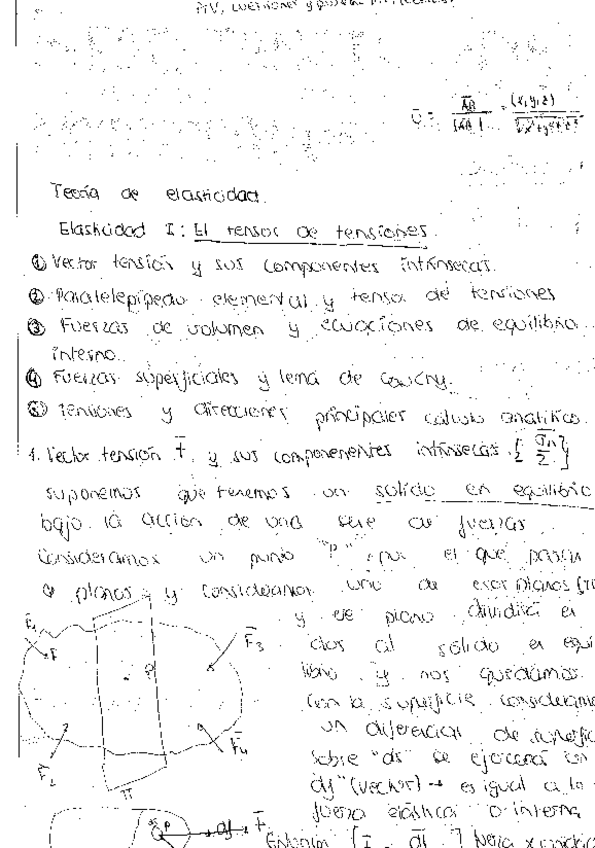 Teoría de elasticidad.
Elasticidad I: El tensor de tensiones.
① Vector tensión y sus componentes intrínsecas.
② Paralelepípedo elemental y tensor de tensiones
③ Fuerzas de volumen y ecuaciones de equilibrio
interno.
④ Fuerzas superficiales y lema de Cauchy.
⑤ Tensiones y direcciones principales calculo analítico.
1. Vector tensión t̄ y sus componentes intrínsecas
suponemos que tenemos un solido en equilibrio
bajo la acción de una serie de fuerzas
consideramos un punto "P" por el que pasan
planos y consideramos uno de esos planos
y ese plano dividirá en
dos al solido en equi
librio y nos quedamos
con la superficie
un diferencial de
sobre "ds" se ejercerá un
df" (vector) → es igual a la
fuerza elástica o interna
F̄₁
F̄₃
P
F̄₂
F̄₄
π
P